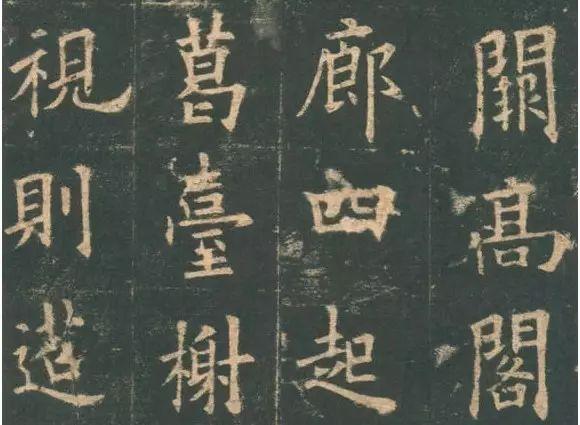 闕高閣
廊四起
葛臺榭
視則迢